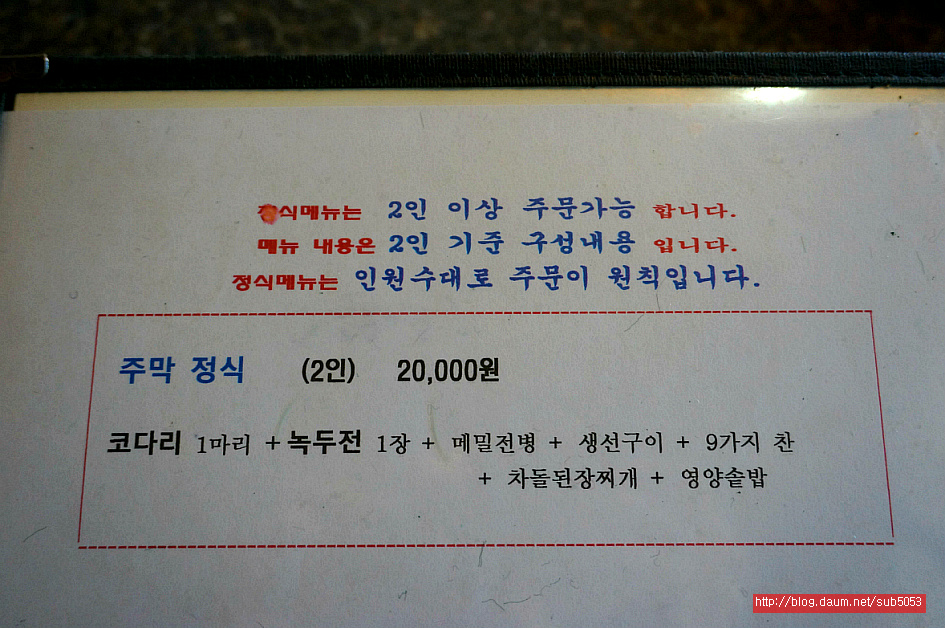 정식메뉴는 2인 이상 주문가능 합니다.
메뉴 내용은 2인 기준 구성내용 입니다.
정식메뉴는 인원수대로 주문이 원칙입니다.
주막 정식 (2인) 20,000원
코다리 1마리 + 녹두전 1장 + 메밀전병 + 생선구이 + 9가지 찬
+ 차돌된장찌개 + 영양솥밥
http://blog.daum.net/sub5053